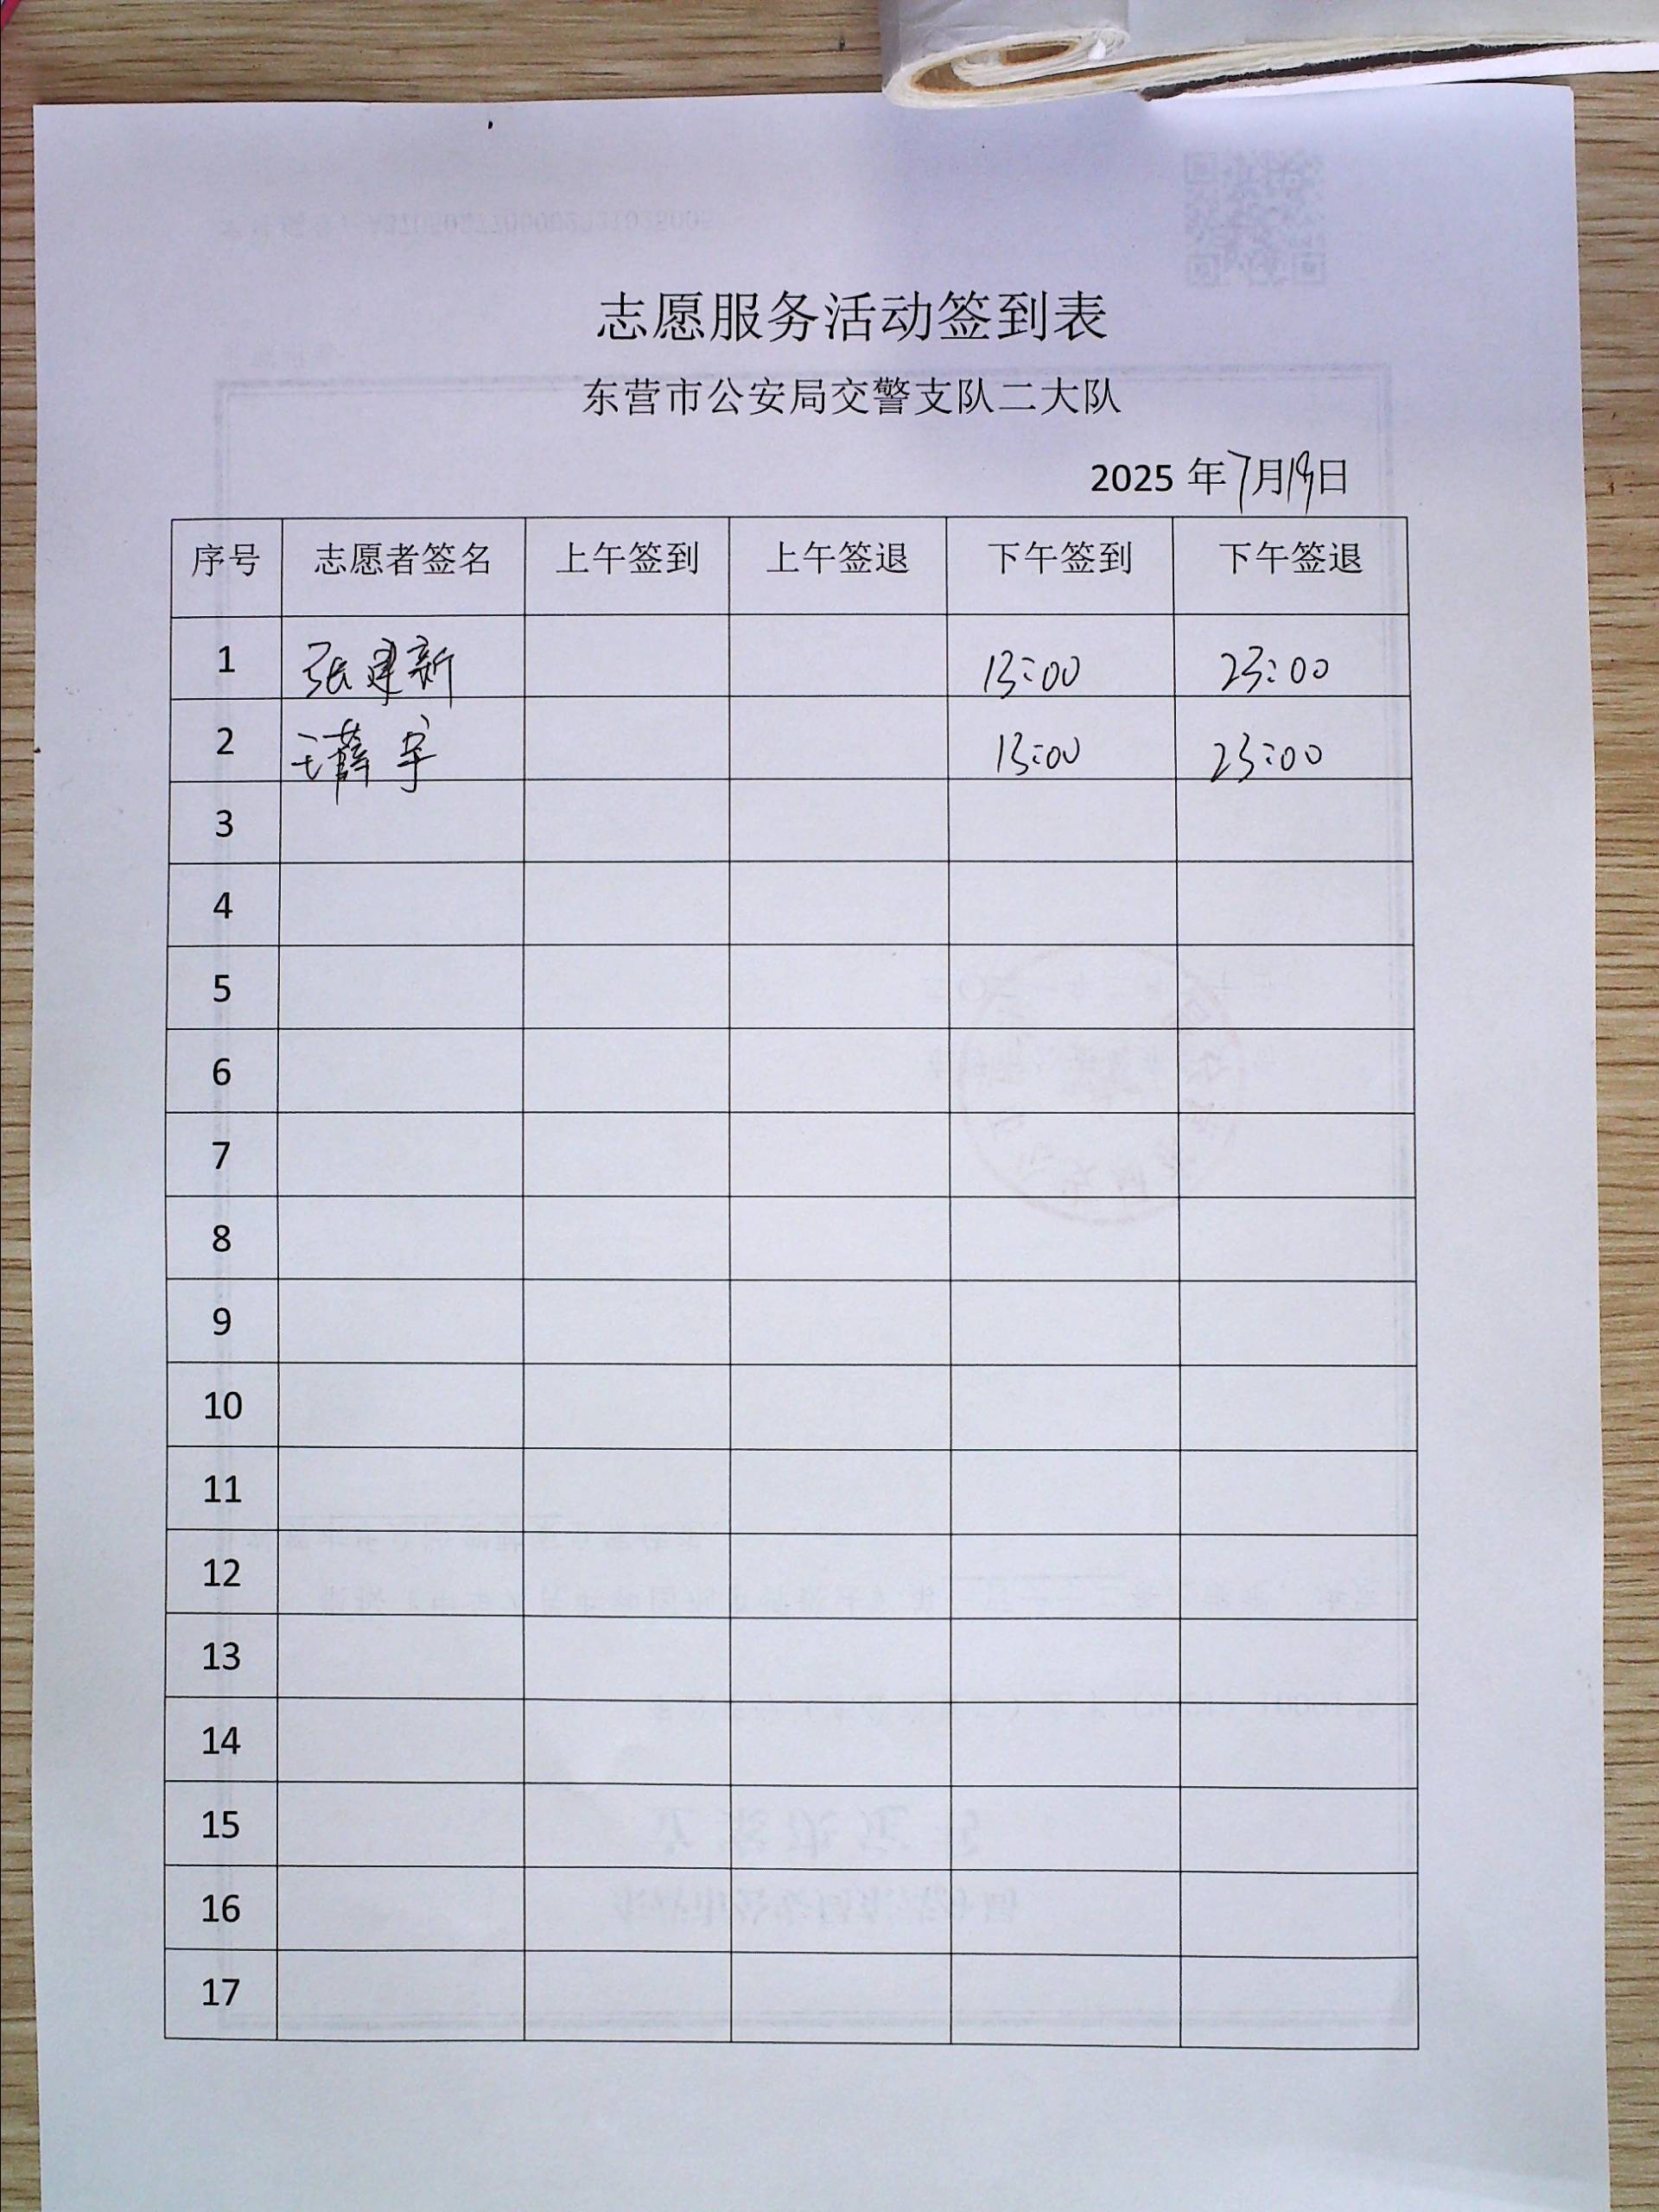 志愿服务活动签到表
东营市公安局交警支队二大队
2025 年7月19日
序号 志愿者签名 上午签到 上午签退 下午签到 下午签退
1 张建新 13:00 23:00
2 王薛宇 13:00 23:00
3
4
5
6
7
8
9
10
11
12
13
14
15
16
17